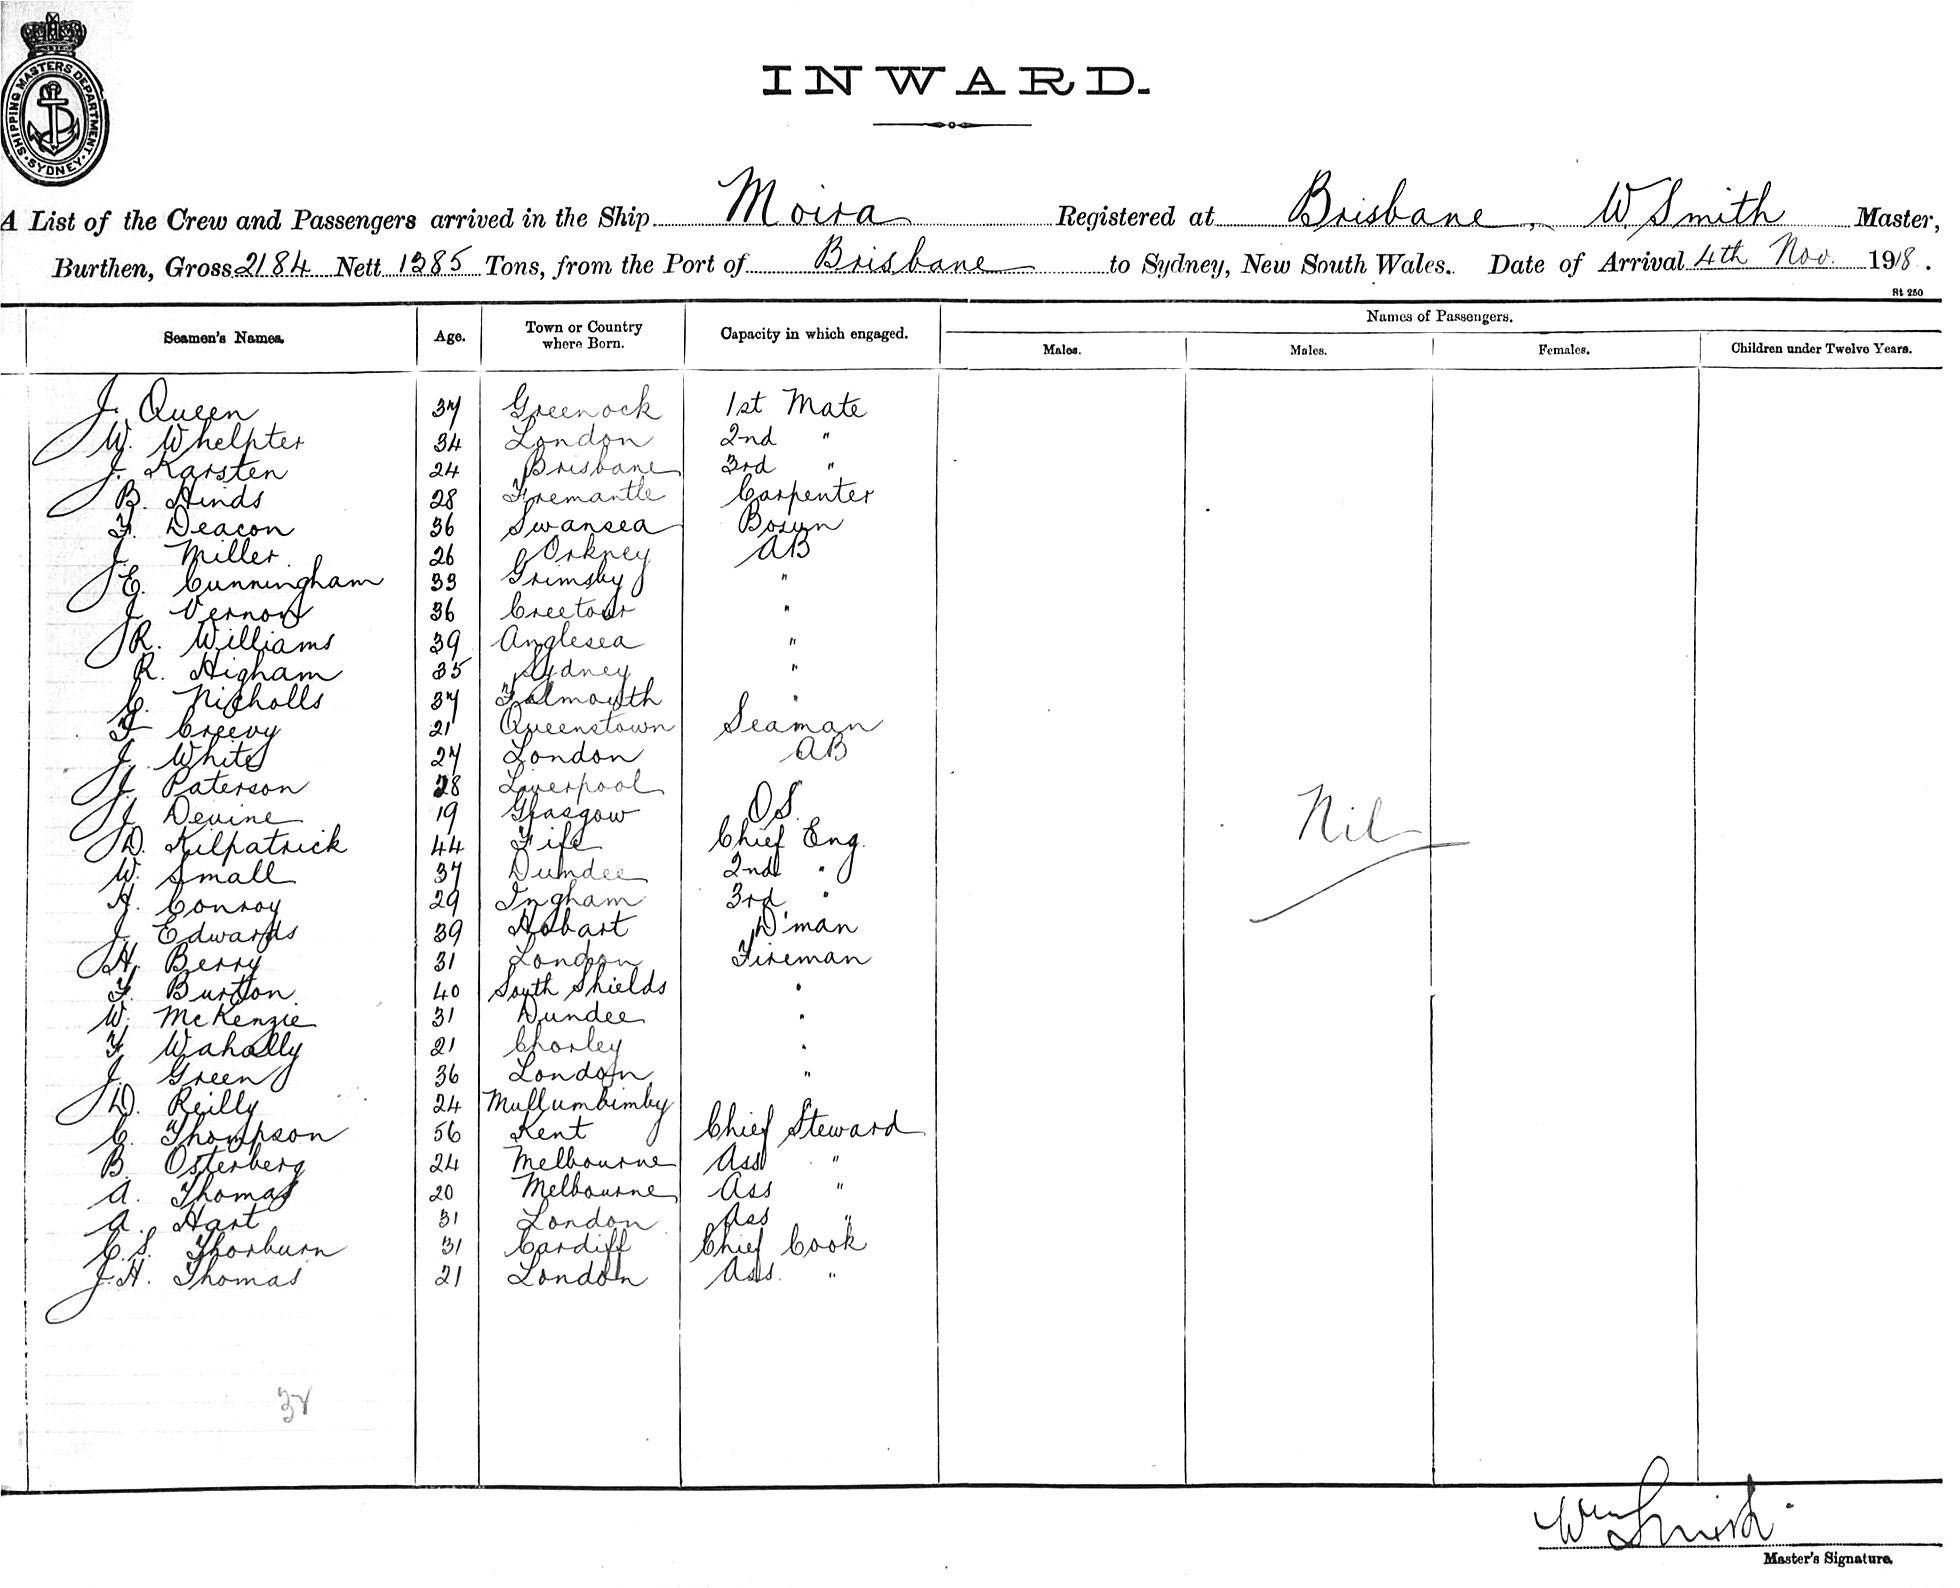 SHIPPING MASTERS DEPARTMENT · SYDNEY ·
INWARD.
A List of the Crew and Passengers arrived in the Ship Moira Registered at Brisbane, W Smith Master,
Burthen, Gross 2184 Nett 1385 Tons, from the Port of Brisbane to Sydney, New South Wales. Date of Arrival 4th Nov. 1918.
St 250
Seamen's Names. Age. Town or Country where Born. Capacity in which engaged. Names of Passengers.
Males. Males. Females. Children under Twelve Years.
J. Queen 37 Greenock 1st Mate
W. Whelpter 34 London 2nd "
J. Karsten 24 Brisbane 3rd "
B. Hinds 28 Fremantle Carpenter
F. Deacon 36 Swansea Bosun
J. Miller 26 Orkney AB
E. Cunningham 33 Grimsby "
J. Vernon 36 Creetour "
R. Williams 39 Anglesea "
R. Higham 35 Sydney "
C. Nicholls 37 Falmouth "
F Creevy 21 Queenstown Seaman
J. White 27 London AB
J. Paterson 28 Liverpool "
J. Devine 19 Glasgow OS.
D. Kilpatrick 44 Fife Chief Eng.
W. Small 37 Dundee 2nd "
H. Conroy 29 Ingham 3rd "
J. Edwards 39 Hobart D'man
H. Berry 31 London Fireman
F. Burton 40 South Shields "
W. McKenzie 31 Dundee "
F Wahally 21 Chorley "
J. Green 36 London "
D. Reilly 24 Mullumbimby
C. Thompson 56 Kent Chief Steward
B. Osterberg 24 Melbourne Ass "
A. Thomas 20 Melbourne Ass "
A. Hart 31 London Ass "
C.S. Thorburn 31 Cardiff Chief Cook
J.H. Thomas 21 London Ass. "
Nil
Wm Smith
Master's Signature.